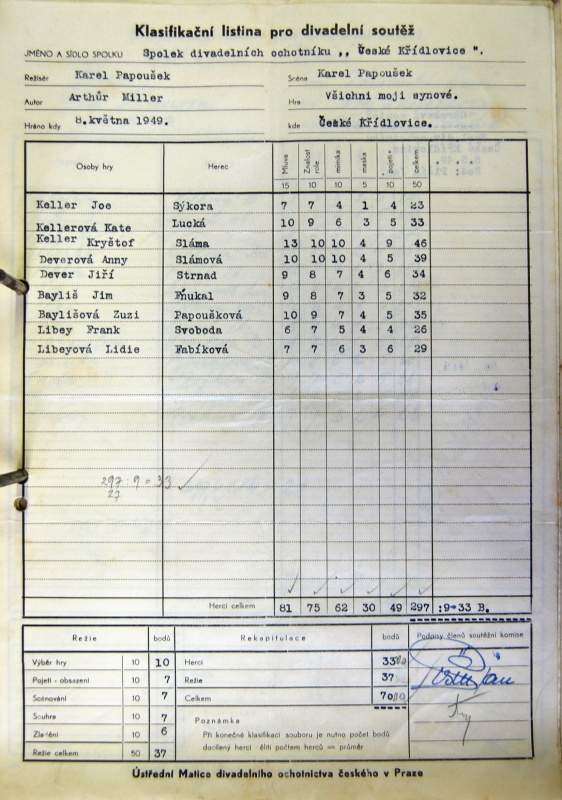 Klasifikační listina pro divadelní soutěž
JMÉNO A SÍDLO SPOLKU Spolek divadelních ochotníku ,, České Křídlovice ".
Režisér Karel Papoušek Scéna Karel Papoušek
Autor Arthůr Miller Hra Všichni moji synové.
Hráno kdy 8.května 1949. kde České Křídlovice.
Osoby hry Herec Mluva Znalost role mimika maska pojetí celkem
15 10 10 5 10 50
Keller Joe Sýkora 7 7 4 1 4 23
Kellerová Kate Lucká 10 9 6 3 5 33
Keller Kryštof Sláma 13 10 10 4 9 46
Deverová Anny Slámová 10 10 10 4 5 39
Dever Jiří Strnad 9 8 7 4 6 34
Bayliš Jim 9 8 7 3 5 32
Baylišová Zuzi Papoušková 10 9 7 4 5 35
Libey Frank Svoboda 6 7 5 4 4 26
Libeyová Lidie Fabíková 7 7 6 3 6 29
297 : 9 = 33
27
Herci celkem 81 75 62 30 49 297 :9=33 B.
Režie bodů Rekapitulace bodů Podpisy členů soutěžní komise
Výběr hry 10 10 Herci 33
Pojetí - obsazení 10 7 Režie 37
Scénování 10 7 Celkem 70
Souhra 10 7 Poznámka
Zladění 10 6 Při konečné klasifikaci souboru je nutno počet bodů
docílený herci děliti počtem herců = průměr
Režie celkem 50 37
Ústřední Matice divadelního ochotnictva českého v Praze